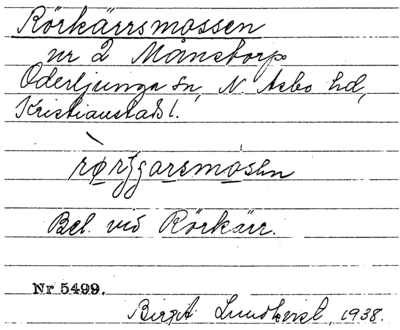 Rörkärrsmossen
nr 2 Månstorp
Oderljunga sn, N. Åsbo hd,
Kristianstads l.
Bel. vid Rörkärr.
Nr 5499.
Birgit 1938.